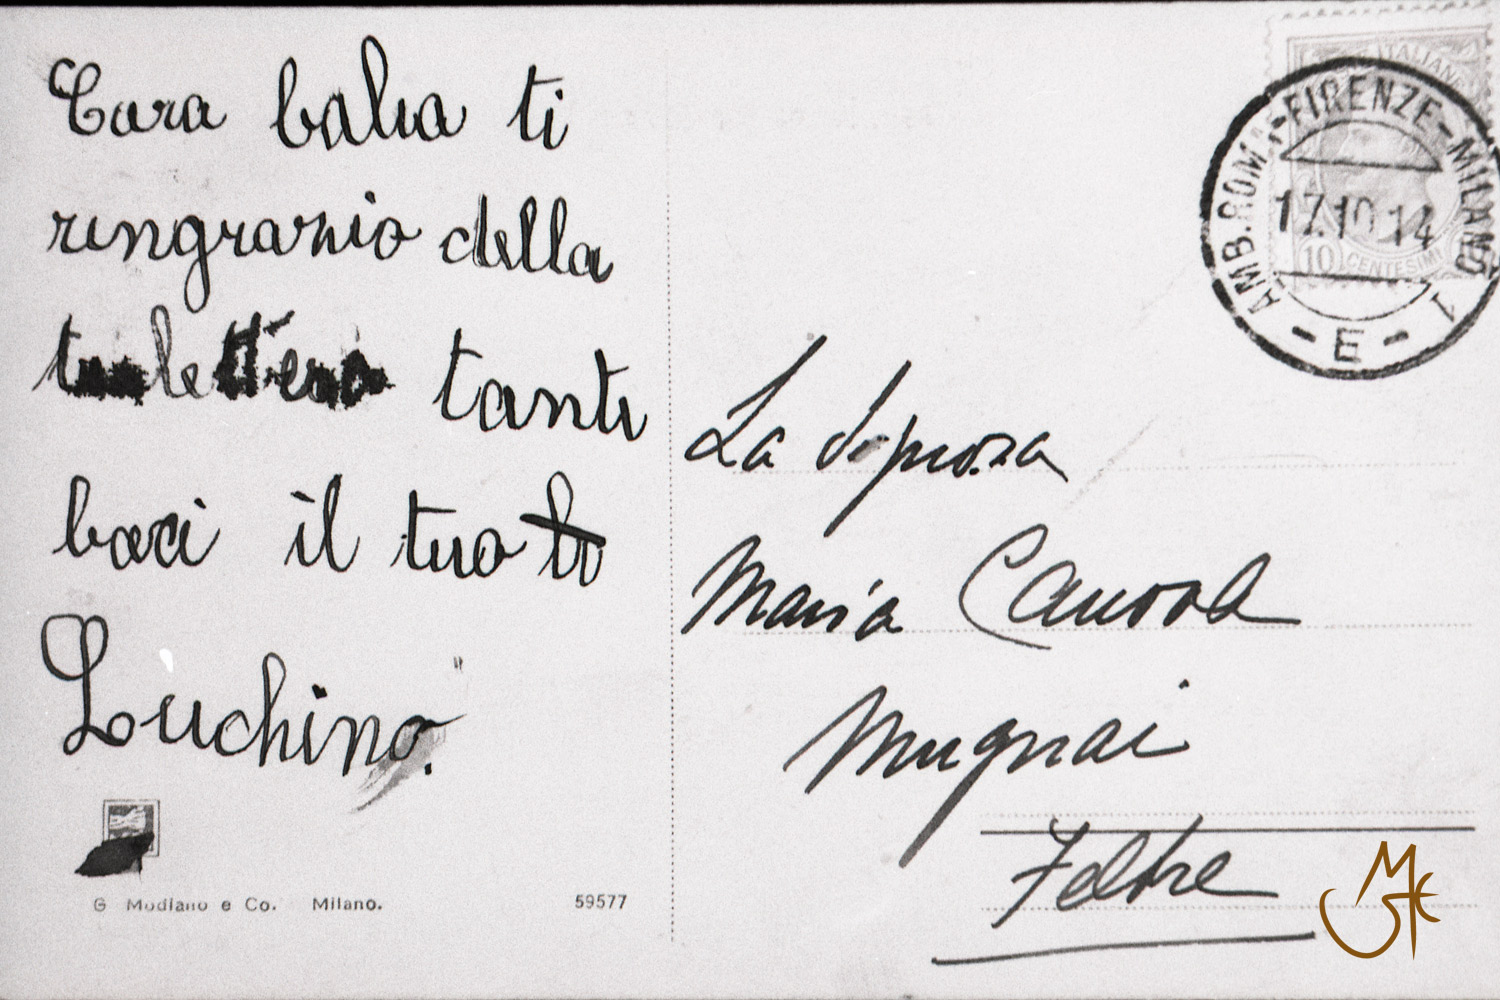 Cara balia ti
ringrazio della
tua lettera tanti
baci il tuo
Luchino.
G Modiano e Co. Milano.
59577
ITALIANE
AMB. ROMA-FIRENZE-MILANO 1
17.10.14
10 CENTESIMI
- E -
La Signora
Maria Canova
Mugnai
Feltre